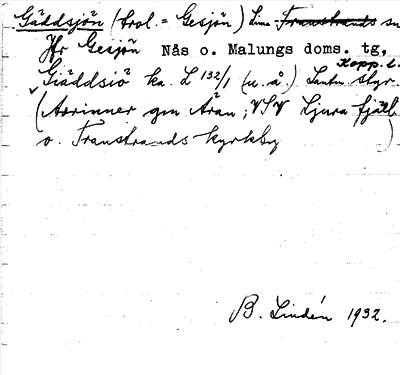 Gäddsjön (trol. = Gesjön) Lima Transtrands sn
Jfr Gesjön Nås o. Malungs doms. tg,
Kopp. l.
Giäddsiö ka. L 132/1 (u.å.) Lantm. styr.
(Avrinner gm Åran; VSV Ljura fjäll
o. Transtrands kyrkby )
B. Lindén 1932.